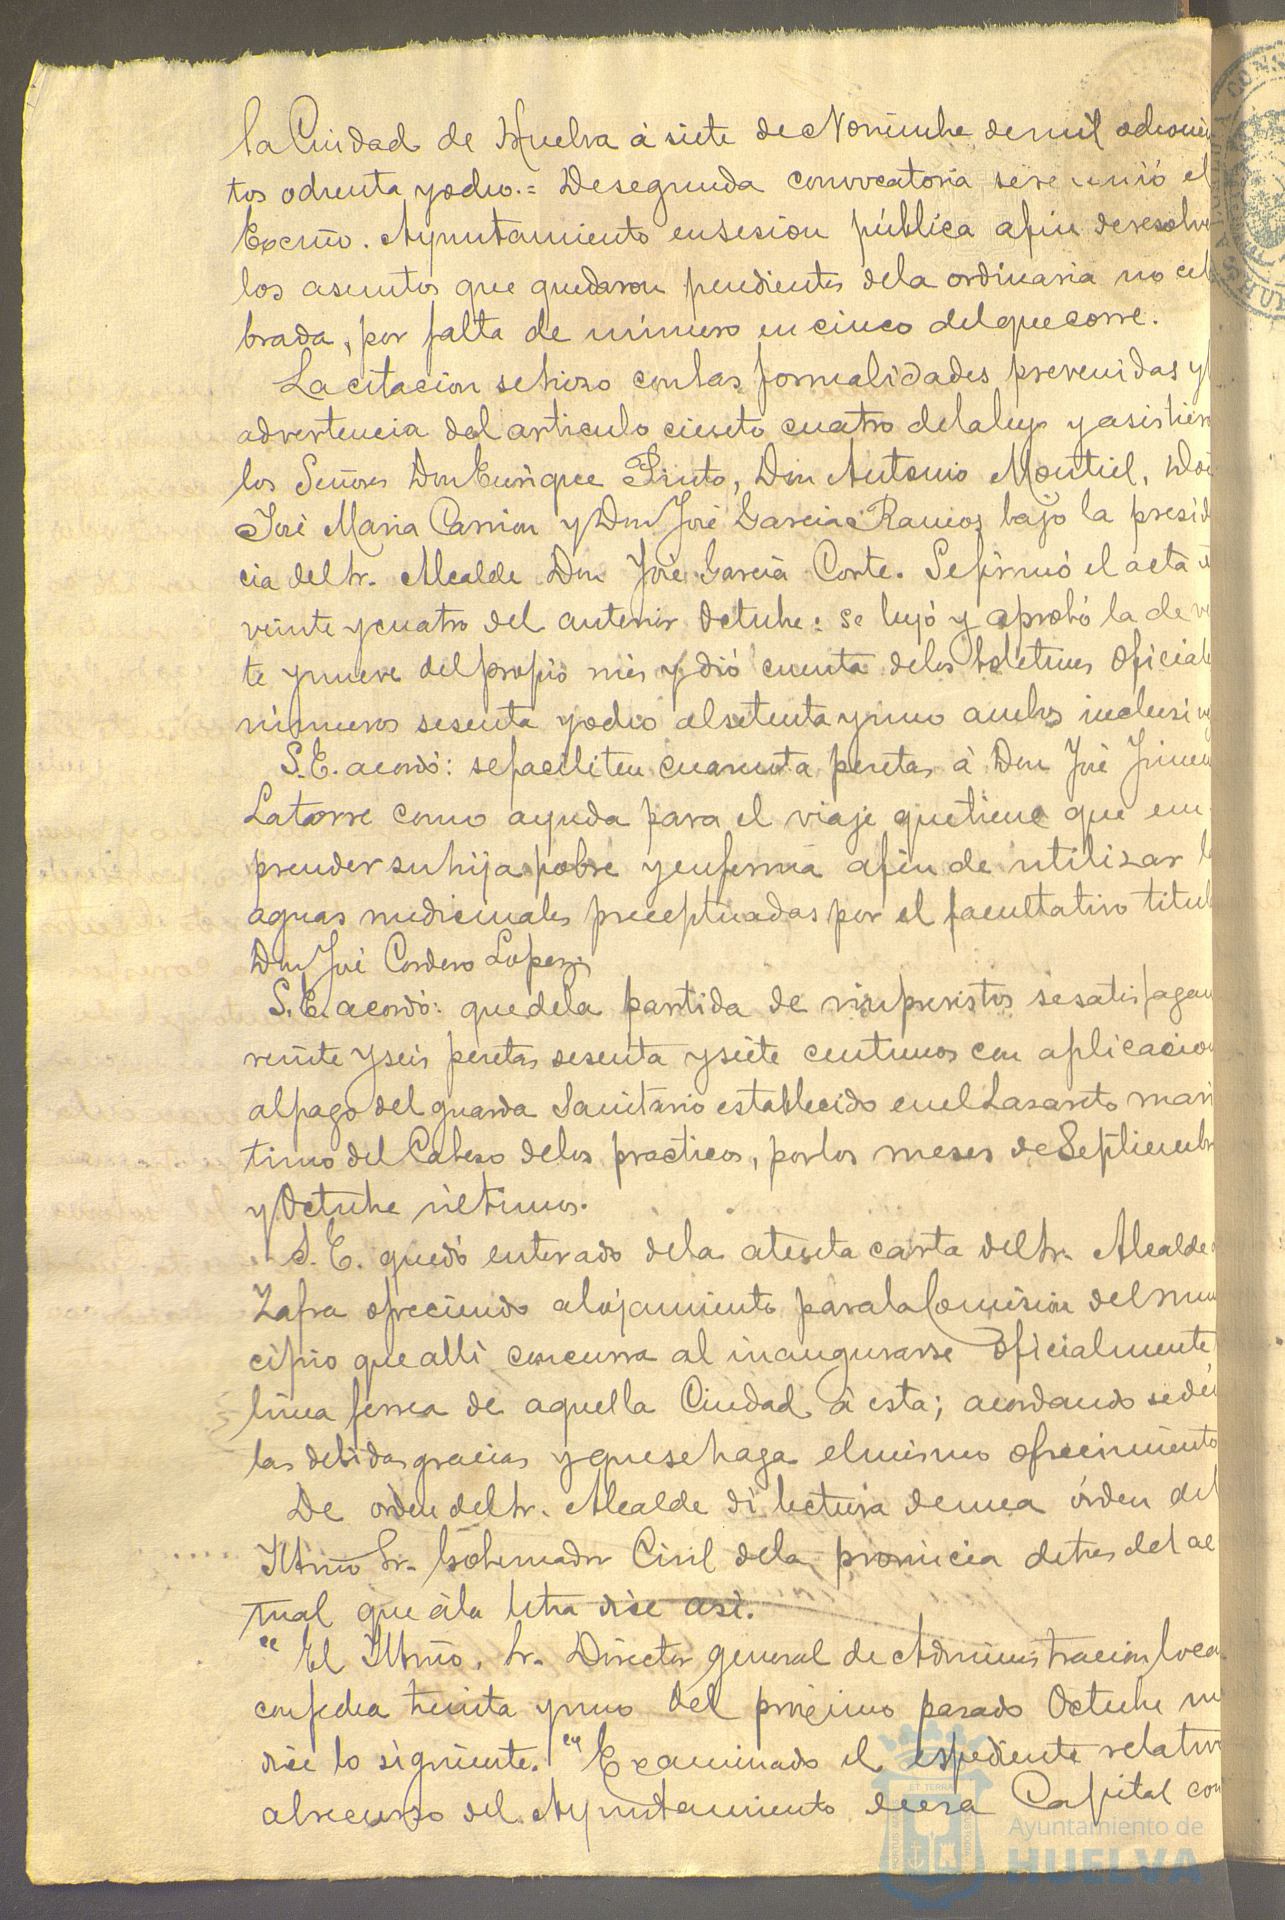 la Ciudad de Huelva á siete de Noviembre de mil ochocien
tos ochenta y ocho.= De segunda convocatoria se reunió el
Excmo. Ayuntamiento en sesion pública a fin de resolve
los asuntos que quedaron pendientes de la ordinaria no cel
brada, por falta de número en cinco del que corre.
La citacion se hizo con las formalidades prevenidas y
advertencia del articulo ciento cuatro de la ley y asistiero
los Señores Don Enrique Pinto, Don Antonio Montiel, Don
José Maria Carrion y Don José Garcia Ramos bajo la presid
cia del Sr. Alcalde Don José Garcia Corte. Se firmó el acta
veinte y cuatro del anterior Octubre: se leyó y aprobó la de ve
te y nueve del propio mes y dió cuenta de los boletines oficiale
números sesenta y ocho al setenta y uno ambos inclusive
S.E. acordó: se faciliten cuarenta pesetas á Don José Jimen
Latorre como ayuda para el viaje que tiene que em
prender su hija pobre y enferma a fin de utilizar l
aguas medicinales preceptuadas por el facultativo titul
Don José Cordero Lopez.
S.E. acordó: que de la partida de imprevistos se satisfagan
veinte y seis pesetas sesenta y siete centimos con aplicacion
al pago del guarda Sanitario establecido en el Lazareto mari
timo del Cabezo de los practicos, por los meses de Septiembr
y Octubre últimos.
S.E. quedó enterado de la atenta carta del Sr. Alcalde
Zafra ofreciendo alojamiento para la Comision del muni
cipio que alli concurra al inaugurarse oficialmente
linea ferrea de aquella Ciudad á esta; acordando se den
las debidas gracias y que se haga el mismo ofrecimiento
De orden del Sr. Alcalde dí lectura de una órden del
Iltmo Sr. Gobernador Civil de la provincia de tres del ac
tual que á la letra dice asi.
"El Iltmo. Sr. Director general de Administracion loca
con fecha treinta y uno del próximo pasado Octubre me
dice lo siguiente. "Examinado el espediente relativo
al recurso del Ayuntamiento de esa Capital con
ET TERRAE
Ayuntamiento de
HUELVA